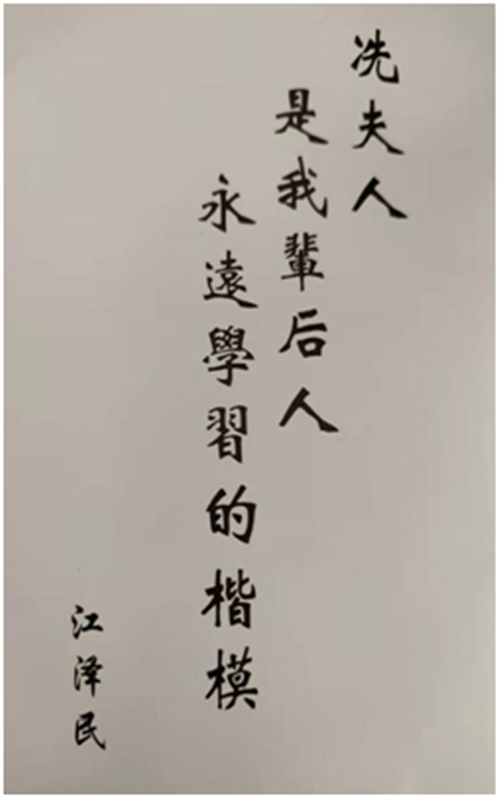 冼夫人
是我輩后人
永遠學習的楷模
江泽民